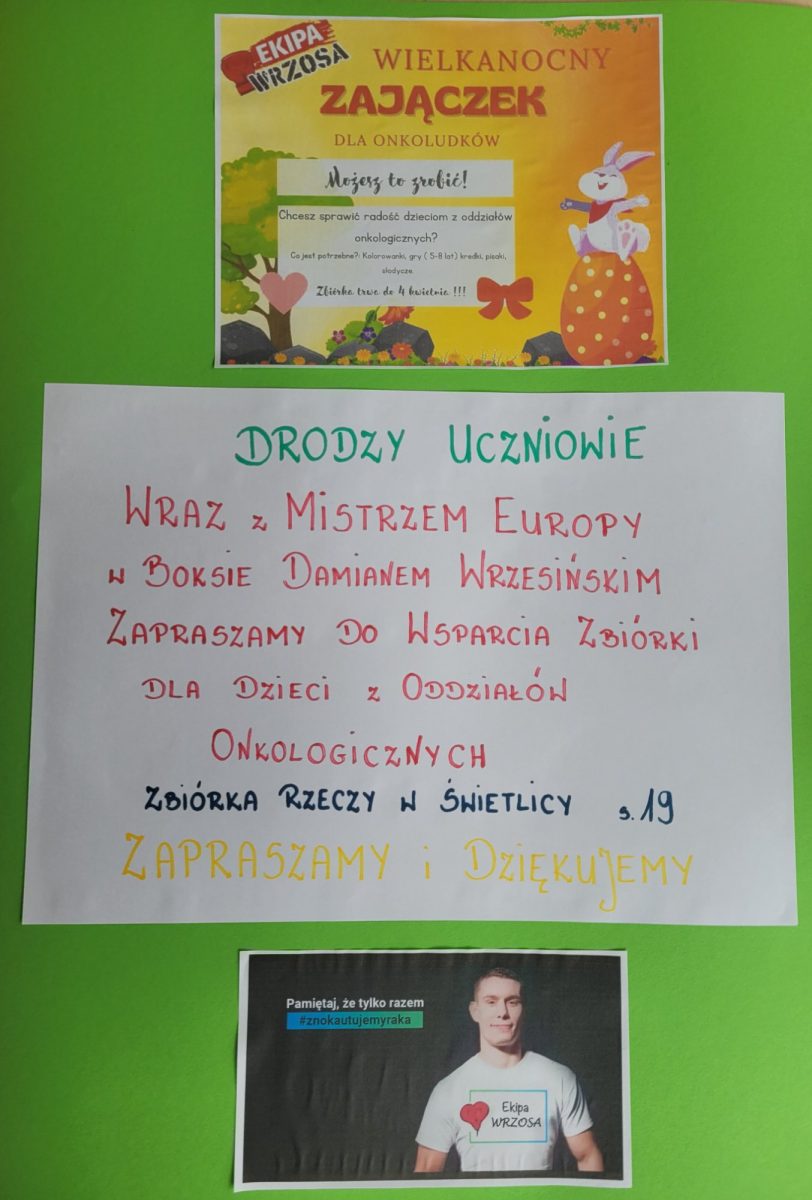 EKIPA
WRZOSA
WIELKANOCNY
ZAJĄCZEK
DLA ONKOLUDKÓW
Możesz to zrobić!
Chcesz sprawić radość dzieciom z oddziałów
onkologicznych?
Co jest potrzebne?: Kolorowanki, gry ( 5-8 lat) kredki, pisaki,
słodycze.
Zbiórka trwa do 4 kwietnia !!!
DRODZY UCZNIOWIE
WRAZ z MISTRZEM EUROPY
W BOKSIE DAMIANEM WRZESIŃSKIM
ZAPRASZAMY DO WSPARCIA ZBIÓRKI
DLA DZIECI z ODDZIAŁÓW
ONKOLOGICZNYCH
ZBIÓRKA RZECZY W ŚWIETLICY s. 19
ZAPRASZAMY i DZIĘKUJEMY
Pamiętaj, że tylko razem
#znokautujemyraka
Ekipa
WRZOSA